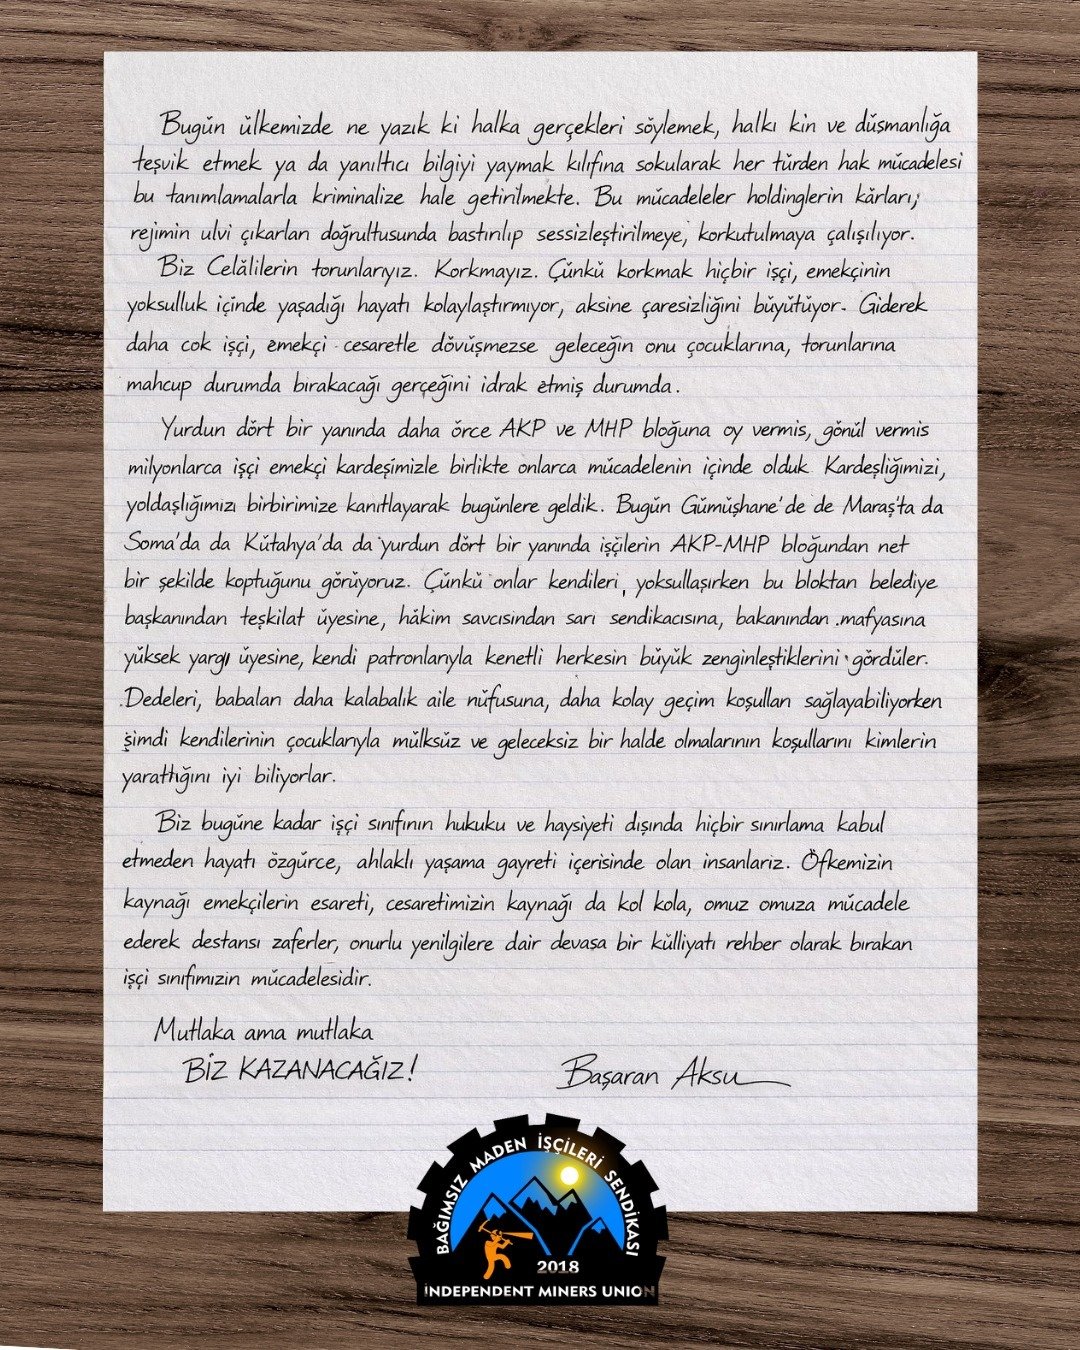 Bugün ülkemizde ne yazık ki halka gerçekleri söylemek, halkı kin ve düşmanlığa
teşvik etmek ya da yanıltıcı bilgiyi yaymak kılıfına sokularak her türden hak mücadelesi
bu tanımlamalarla kriminalize hale getirilmekte. Bu mücadeleler holdinglerin kârları,
rejimin ulvi çıkarları doğrultusunda bastırılıp sessizleştirilmeye, korkutulmaya çalışılıyor.
Biz Celâlilerin torunlarıyız. Korkmayız. Çünkü korkmak hiçbir işçi, emekçinin
yoksulluk içinde yaşadığı hayatı kolaylaştırmıyor, aksine çaresizliğini büyütüyor. Giderek
daha cok işçi, emekçi cesaretle dövüşmezse geleceğin onu çocuklarına, torunlarına
mahcup durumda bırakacağı gerçeğini idrak etmiş durumda.
Yurdun dört bir yanında daha örce AKP ve MHP bloğuna oy vermis, gönül vermis
milyonlarca işçi emekçi kardeşimizle birlikte onlarca mücadelenin içinde olduk Kardeşliğimizi,
yoldaşlığımızı birbirimize kanıtlayarak bugünlere geldik. Bugün Gümüşhane'de de Maraş'ta da
Soma'da da Kütahya'da da yurdun dört bir yanında işçilerin AKP-MHP bloğundan net
bir şekilde koptuğunu görüyoruz. Çünkü onlar kendileri, yoksullaşırken bu bloktan belediye
başkanından teşkilat üyesine, hâkim savcısından sarı sendikacısına, bakanından mafyasına
yüksek yargı üyesine, kendi patronlarıyla kenetli herkesin büyük zenginleştiklerini gördüler.
Dedeleri, babaları daha kalabalık aile nüfusuna, daha kolay geçim koşulları sağlayabiliyorken
şimdi kendilerinin çocuklarıyla mülksüz ve geleceksiz bir halde olmalarının koşullarını kimlerin
yarattığını iyi biliyorlar.
Biz bugüne kadar işçi sınıfının hukuku ve haysiyeti dışında hiçbir sınırlama kabul
etmeden hayatı özgürce, ahlaklı yaşama gayreti içerisinde olan insanlarız. Öfkemizin
kaynağı emekçilerin esareti, cesaretimizin kaynağı da kol kola, omuz omuza mücadele
ederek destansı zaferler, onurlu yenilgilere dair devasa bir külliyatı rehber olarak bırakan
işçi sınıfımızın mücadelesidir.
Mutlaka ama mutlaka
BİZ KAZANACAĞIZ!
Başaran Aksu
BAĞIMSIZ MADEN İŞÇİLERİ SENDİKASI
2018
İNDEPENDENT MINERS UNION